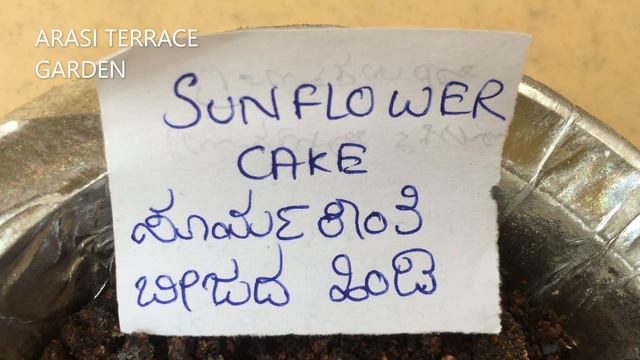 ARASI TERRACE
GARDEN
SUNFLOWER
CAKE
ಸೂರ್ಯಕಾಂತಿ
ಬೀಜದ ಹಿಂಡಿ